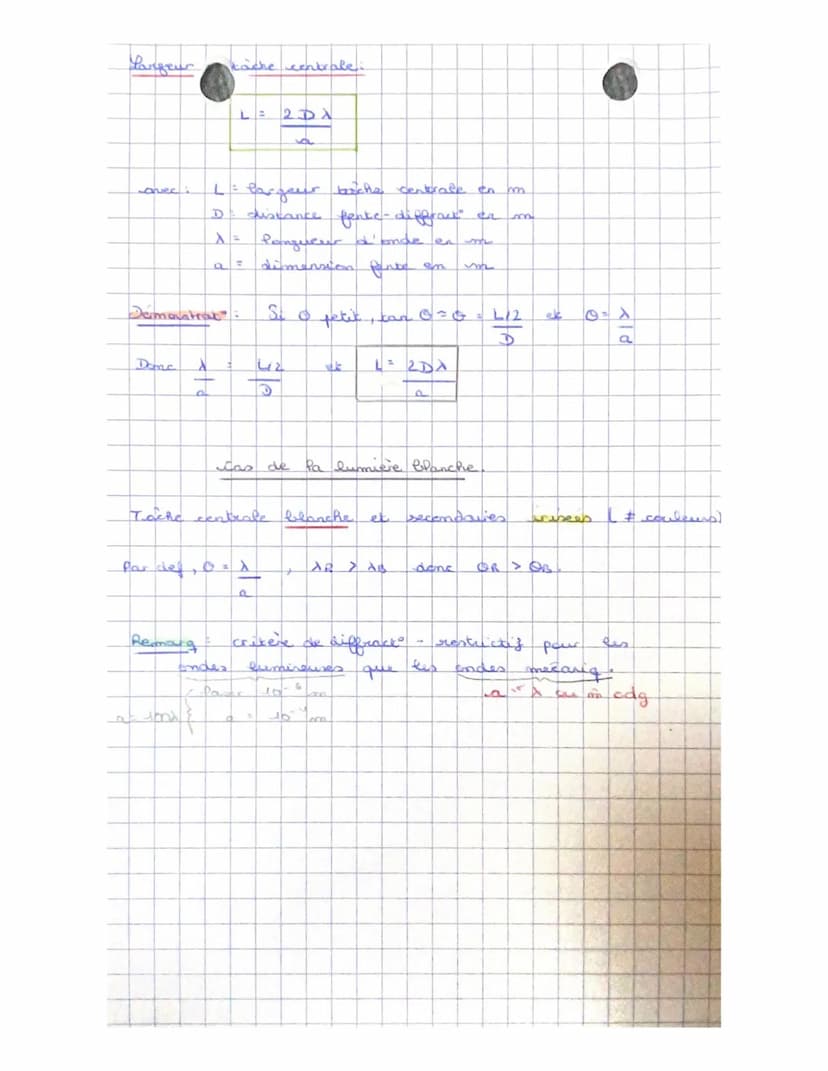 Largeur tâche centrale.
L = 2Dλ / a
avec : L = largeur tâche centrale en m
D : distance fente-diffract° en m
λ = longueur d'onde en m
a = dimension fente en m
Démonstrat° : Si θ petit, tan θ ≈ θ = L/2 / D et θ = λ / a
Donc λ / a = L/2 / D et L = 2Dλ / a
Cas de la lumière blanche.
Tâche centrale blanche et secondaires irisées ( ≠ couleurs)
Par def, θ = λ / a , λR > λB donc θR > θB.
Remarq : critère de diffract° - restrictif pour les
ondes lumineuses que les ondes mécaniq.
laser 10⁻⁶ m
a λ ou m̂ cdg
a = 100λ { a = 10⁻⁴ m